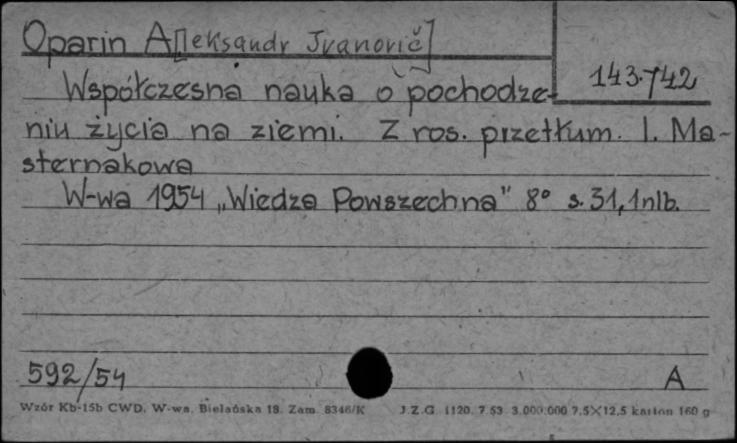 Oparin A[leksandr Ivanovič]
143.742
Współczesna nauka o pochodze-
niu życia na ziemi. Z ros. przetłum. I. Ma-
sternakowa
W-wa 1954 „Wiedza Powszechna" 8° s. 31, 1 nlb.
592/54
A
Wzór Kb-15b CWD, W-wa, Bielańska 18. Zam. 8346/K J.Z.G. 1120. 7.53. 3.000.000 7,5×12,5 karton 160 g